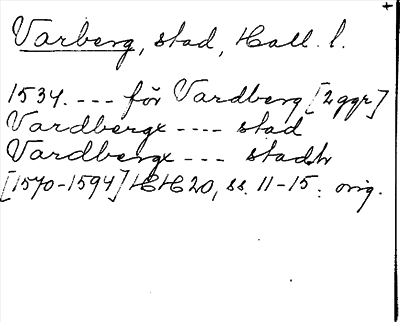 Varberg, stad, Hall. l.
1534. --- för Vardberg [2 ggr]
Vardbergx ---- stad
Vardbergx --- stadh
[1570-1594] HH 20, ss. 11-15. orig.